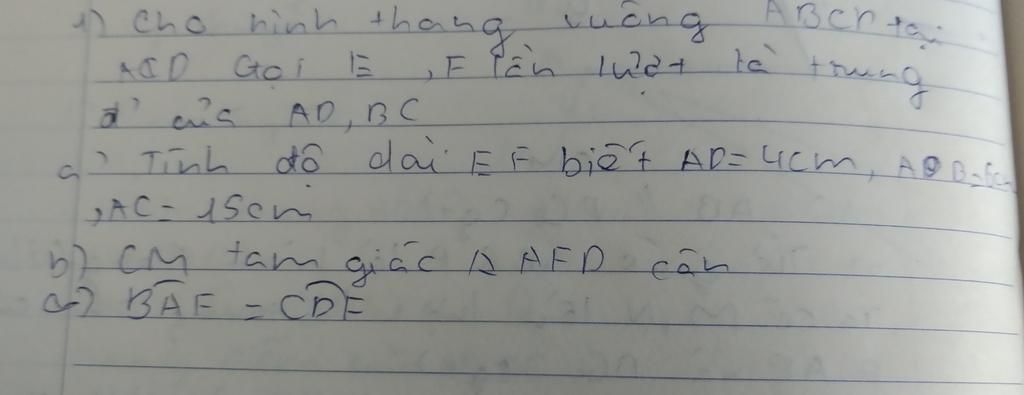 1) Cho hình thang vuông ABCD tại
A(D Gọi E , F lần lượt là trung
đ' của AD, BC
a) Tính độ dài EF biết AD = 4cm, AB = 5cm
, AC = 15cm
b) CM tam giác Δ AFD cân
c) BAF = CDF